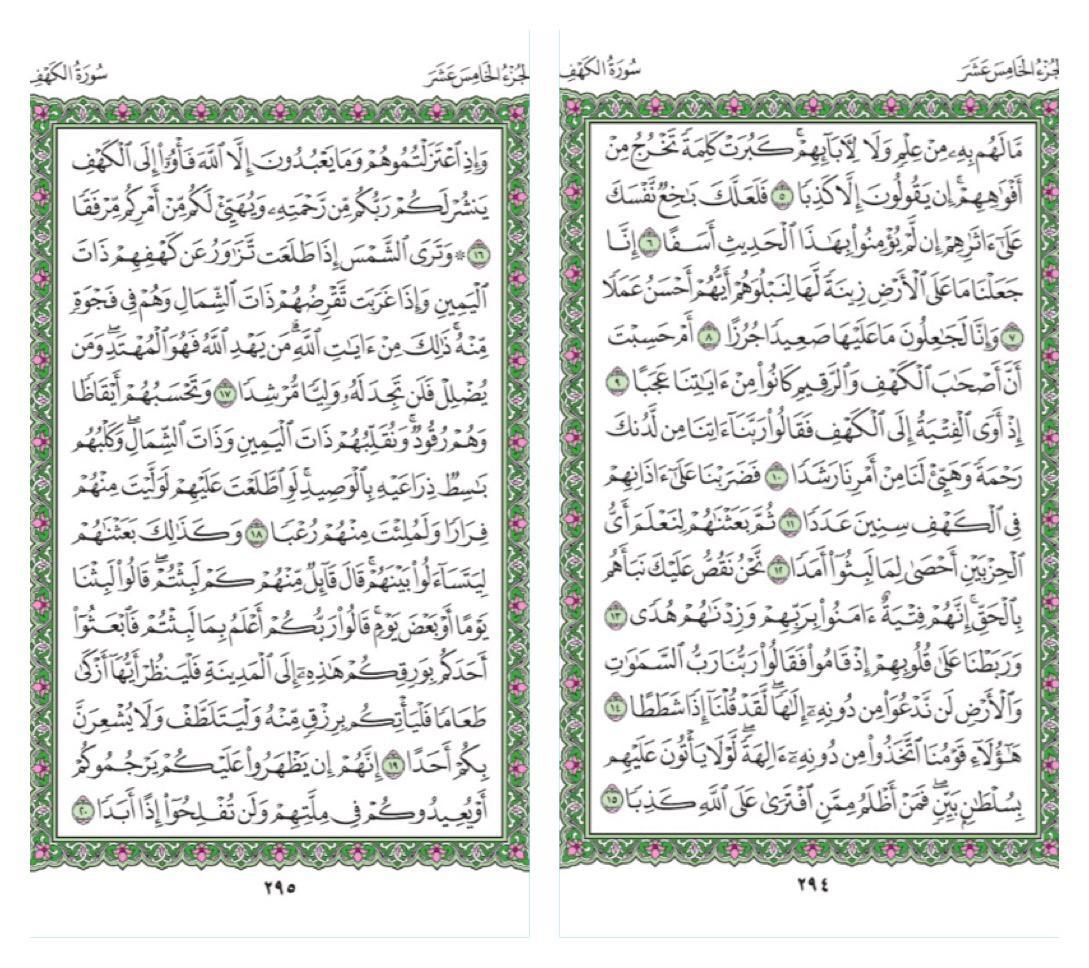 الجزء الخامس عشر
سورة الكهف
مَّا لَهُم بِهِۦ مِنْ عِلْمٍ وَلَا لِأٓبَآئِهِمْۚ كَبُرَتْ كَلِمَةً تَخْرُجُ مِنْ
أَفْوَٰهِهِمْۚ إِن يَقُولُونَ إِلَّا كَذِبًا ٥ فَلَعَلَّكَ بَٰخِعٌ نَّفْسَكَ
عَلَىٰٓ ءَاثَٰرِهِمْ إِن لَّمْ يُؤْمِنُوا۟ بِهَٰذَا ٱلْحَدِيثِ أَسَفًا ٦ إِنَّا
جَعَلْنَا مَا عَلَى ٱلْأَرْضِ زِينَةً لَّهَا لِنَبْلُوَهُمْ أَيُّهُمْ أَحْسَنُ عَمَلًا
٧ وَإِنَّا لَجَٰعِلُونَ مَا عَلَيْهَا صَعِيدًا جُرُزًا ٨ أَمْ حَسِبْتَ
أَنَّ أَصْحَٰبَ ٱلْكَهْفِ وَٱلرَّقِيمِ كَانُوا۟ مِنْ ءَايَٰتِنَا عَجَبًا ٩
إِذْ أَوَى ٱلْفِتْيَةُ إِلَى ٱلْكَهْفِ فَقَالُوا۟ رَبَّنَآ ءَاتِنَا مِن لَّدُنكَ
رَحْمَةً وَهَيِّئْ لَنَا مِنْ أَمْرِنَا رَشَدًا ١٠ فَضَرَبْنَا عَلَىٰٓ ءَاذَانِهِمْ
فِى ٱلْكَهْفِ سِنِينَ عَدَدًا ١١ ثُمَّ بَعَثْنَٰهُمْ لِنَعْلَمَ أَىُّ
ٱلْحِزْبَيْنِ أَحْصَىٰ لِمَا لَبِثُوٓا۟ أَمَدًا ١٢ نَّحْنُ نَقُصُّ عَلَيْكَ نَبَأَهُم
بِٱلْحَقِّۚ إِنَّهُمْ فِتْيَةٌ ءَامَنُوا۟ بِرَبِّهِمْ وَزِدْنَٰهُمْ هُدًى ١٣
وَرَبَطْنَا عَلَىٰ قُلُوبِهِمْ إِذْ قَامُوا۟ فَقَالُوا۟ رَبُّنَا رَبُّ ٱلسَّمَٰوَٰتِ
وَٱلْأَرْضِ لَن نَّدْعُوَا۟ مِن دُونِهِۦٓ إِلَٰهًاۖ لَّقَدْ قُلْنَآ إِذًا شَطَطًا ١٤
هَٰٓؤُلَآءِ قَوْمُنَا ٱتَّخَذُوا۟ مِن دُونِهِۦٓ ءَالِهَةًۖ لَّوْلَا يَأْتُونَ عَلَيْهِم
بِسُلْطَٰنٍۭ بَيِّنٍۖ فَمَنْ أَظْلَمُ مِمَّنِ ٱفْتَرَىٰ عَلَى ٱللَّهِ كَذِبًا ١٥
٢٩٤
الجزء الخامس عشر
سورة الكهف
وَإِذِ ٱعْتَزَلْتُمُوهُمْ وَمَا يَعْبُدُونَ إِلَّا ٱللَّهَ فَأْوُۥٓا۟ إِلَى ٱلْكَهْفِ
يَنشُرْ لَكُمْ رَبُّكُم مِّن رَّحْمَتِهِۦ وَيُهَيِّئْ لَكُم مِّنْ أَمْرِكُم مِّرْفَقًا
١٦ ۞ وَتَرَى ٱلشَّمْسَ إِذَا طَلَعَت تَّزَٰوَرُ عَن كَهْفِهِمْ ذَاتَ
ٱلْيَمِينِ وَإِذَا غَرَبَت تَّقْرِضُهُمْ ذَاتَ ٱلشِّمَالِ وَهُمْ فِى فَجْوَةٍ
مِّنْهُۚ ذَٰلِكَ مِنْ ءَايَٰتِ ٱللَّهِۗ مَن يَهْدِ ٱللَّهُ فَهُوَ ٱلْمُهْتَدِۖ وَمَن
يُضْلِلْ فَلَن تَجِدَ لَهُۥ وَلِيًّا مُّرْشِدًا ١٧ وَتَحْسَبُهُمْ أَيْقَاظًا
وَهُمْ رُقُودٌۚ وَنُقَلِّبُهُمْ ذَاتَ ٱلْيَمِينِ وَذَاتَ ٱلشِّمَالِۖ وَكَلْبُهُم
بَٰسِطٌ ذِرَاعَيْهِ بِٱلْوَصِيدِۚ لَوِ ٱطَّلَعْتَ عَلَيْهِمْ لَوَلَّيْتَ مِنْهُمْ
فِرَارًا وَلَمُلِئْتَ مِنْهُمْ رُعْبًا ١٨ وَكَذَٰلِكَ بَعَثْنَٰهُمْ
لِيَتَسَآءَلُوا۟ بَيْنَهُمْۚ قَالَ قَآئِلٌ مِّنْهُمْ كَمْ لَبِثْتُمْۖ قَالُوا۟ لَبِثْنَا
يَوْمًا أَوْ بَعْضَ يَوْمٍۚ قَالُوا۟ رَبُّكُمْ أَعْلَمُ بِمَا لَبِثْتُمْ فَٱبْعَثُوٓا۟
أَحَدَكُم بِوَرِقِكُمْ هَٰذِهِۦٓ إِلَى ٱلْمَدِينَةِ فَلْيَنظُرْ أَيُّهَآ أَزْكَىٰ
طَعَامًا فَلْيَأْتِكُم بِرِزْقٍ مِّنْهُ وَلْيَتَلَطَّفْ وَلَا يُشْعِرَنَّ
بِكُمْ أَحَدًا ١٩ إِنَّهُمْ إِن يَظْهَرُوا۟ عَلَيْكُمْ يَرْجُمُوكُمْ
أَوْ يُعِيدُوكُمْ فِى مِلَّتِهِمْ وَلَن تُفْلِحُوٓا۟ إِذًا أَبَدًا ٢٠
٢٩٥